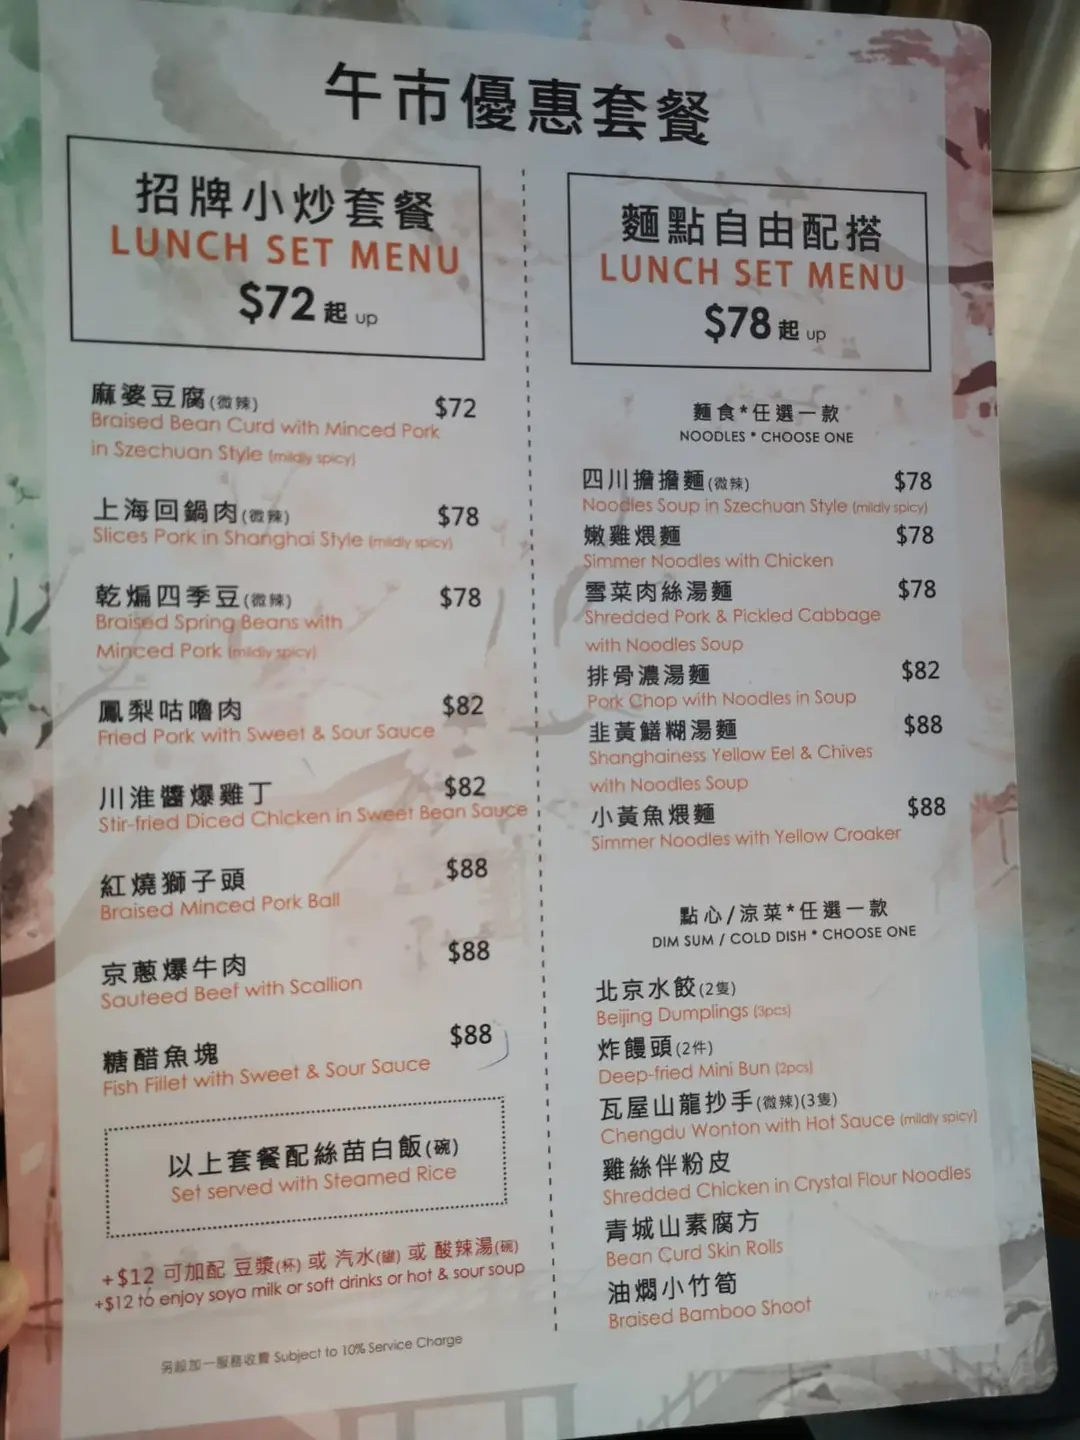 午市優惠套餐
招牌小炒套餐
LUNCH SET MENU
$72起 up
麻婆豆腐(微辣) $72
Braised Bean Curd with Minced Pork
in Szechuan Style (mildly spicy)
上海回鍋肉(微辣) $78
Slices Pork in Shanghai Style (mildly spicy)
乾煸四季豆(微辣) $78
Braised Spring Beans with
Minced Pork (mildly spicy)
鳳梨咕嚕肉 $82
Fried Pork with Sweet & Sour Sauce
川淮醬爆雞丁 $82
Stir-fried Diced Chicken in Sweet Bean Sauce
紅燒獅子頭 $88
Braised Minced Pork Ball
京蔥爆牛肉 $88
Sauteed Beef with Scallion
糖醋魚塊 $88
Fish Fillet with Sweet & Sour Sauce
以上套餐配絲苗白飯(碗)
Set served with Steamed Rice
+$12 可加配 豆漿(杯) 或 汽水(罐) 或 酸辣湯(碗)
+$12 to enjoy soya milk or soft drinks or hot & sour soup
另設加一服務收費 Subject to 10% Service Charge
麵點自由配搭
LUNCH SET MENU
$78起 up
麵食*任選一款
NOODLES * CHOOSE ONE
四川擔擔麵(微辣) $78
Noodles Soup in Szechuan Style (mildly spicy)
嫩雞煨麵 $78
Simmer Noodles with Chicken
雪菜肉絲湯麵 $78
Shredded Pork & Pickled Cabbage
with Noodles Soup
排骨濃湯麵 $82
Pork Chop with Noodles in Soup
韭黃鱔糊湯麵 $88
Shanghainess Yellow Eel & Chives
with Noodles Soup
小黃魚煨麵 $88
Simmer Noodles with Yellow Croaker
點心/涼菜*任選一款
DIM SUM / COLD DISH * CHOOSE ONE
北京水餃(2隻)
Beijing Dumplings (3pcs)
炸饅頭(2件)
Deep-fried Mini Bun (2pcs)
瓦屋山龍抄手(微辣)(3隻)
Chengdu Wonton with Hot Sauce (mildly spicy)
雞絲伴粉皮
Shredded Chicken in Crystal Flour Noodles
青城山素腐方
Bean Curd Skin Rolls
油燜小竹筍
Braised Bamboo Shoot